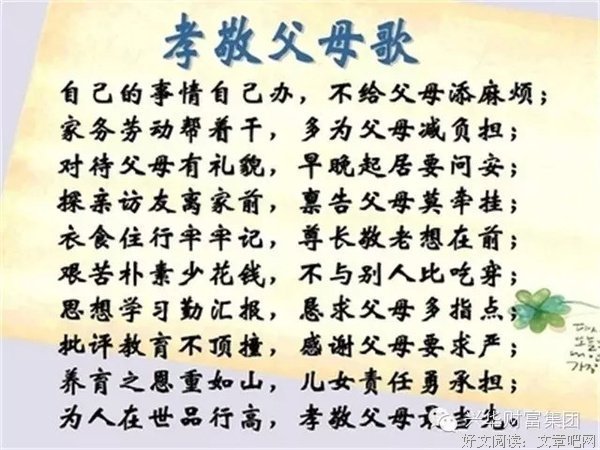 孝敬父母歌
自己的事情自己办，不给父母添麻烦；
家务劳动帮着干，多为父母减负担；
对待父母有礼貌，早晚起居要问安；
探亲访友离家前，禀告父母莫牵挂；
衣食住行牢牢记，尊长敬老想在前；
艰苦朴素少花钱，不与别人比吃穿；
思想学习勤汇报，恳求父母多指点；
批评教育不顶撞，感谢父母要求严；
养育之恩重如山，儿女责任勇承担；
为人在世品行高，孝敬父母
兴华财富集团
好文阅读：文章吧网